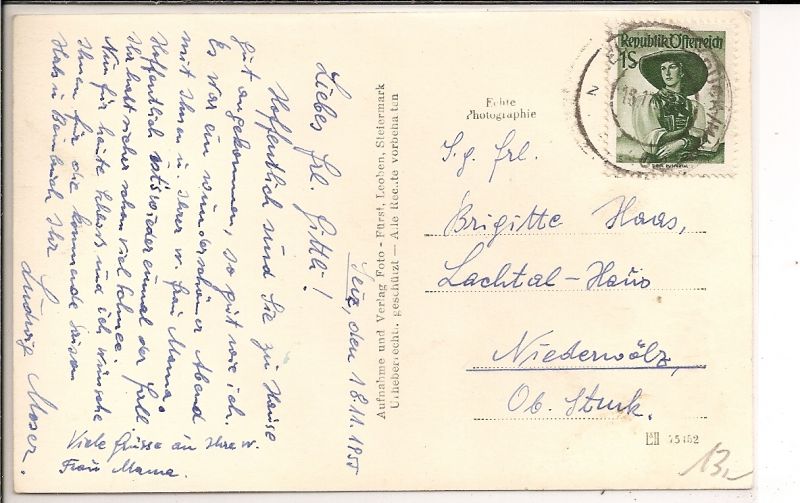 Seiz, den 18.11.1955
Liebes Frl. Gitti!
Hoffentlich sind Sie zu Hause
gut angekommen, so gut wie ich.
Es war ein wunderschöner Abend
mit Ihnen u. Ihrer w. Frau Mama.
Hoffentlich ists wieder einmal der Fall
Ihr habt sicher schon viel Schnee.
Nun für heute Schluss und ich wünsche
Ihnen für die kommende Saison
Hals u Beinbruch Ihr
Ludwig Moser.
Viele Grüsse an Ihre w.
Frau Mama.
Aufnahme und Verlag Foto - Fürst, Leoben, Steiermark
Urheberrechtl. geschützt — Alle Rechte vorbehalten
Echte
Photographie
Republik Österreich
1S
S. g. Frl.
Brigitte Haas,
Lachtal-Haus
Niederwölz,
Ob. Stmk.
45162
13,-